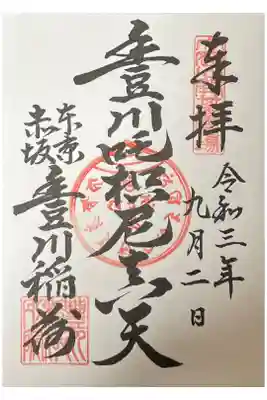 奉拝
令和三年
九月二日
豊川吒枳尼真天
東京
赤坂
豊川稲荷